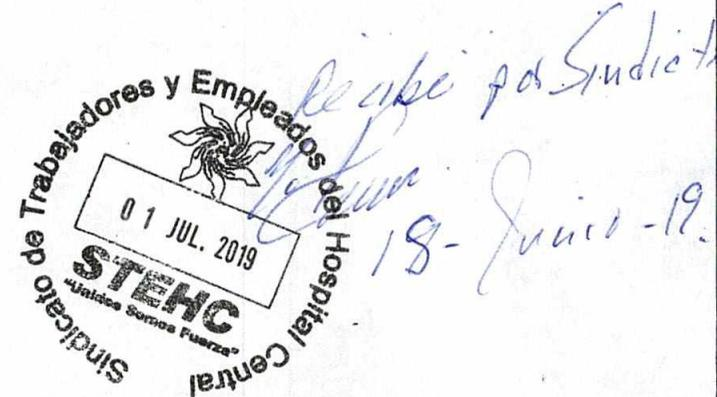 Sindicato de Trabajadores y Empleados del Hospital Central
01 JUL. 2019
STEHC
"Unidos Somos Fuerza"
Recibí por Sindicato
18-Junio-19.